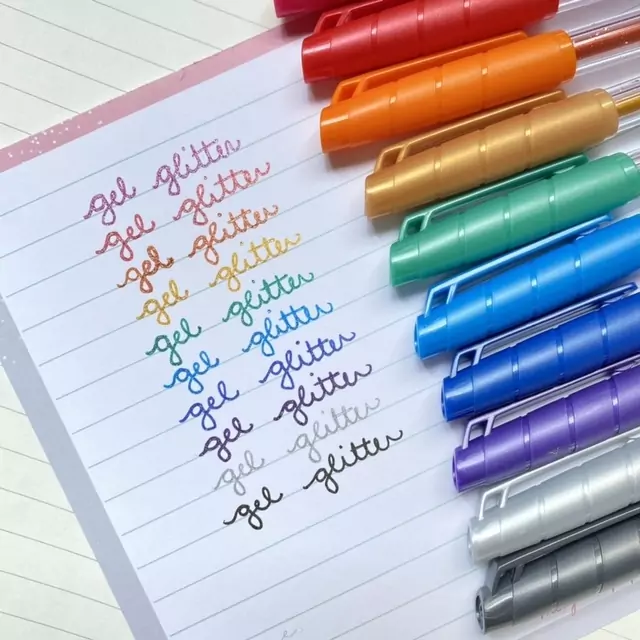 gel glitter
gel glitter
gel glitter
gel glitter
gel glitter
gel glitter
gel glitter
gel glitter
gel glitter
gel glitter